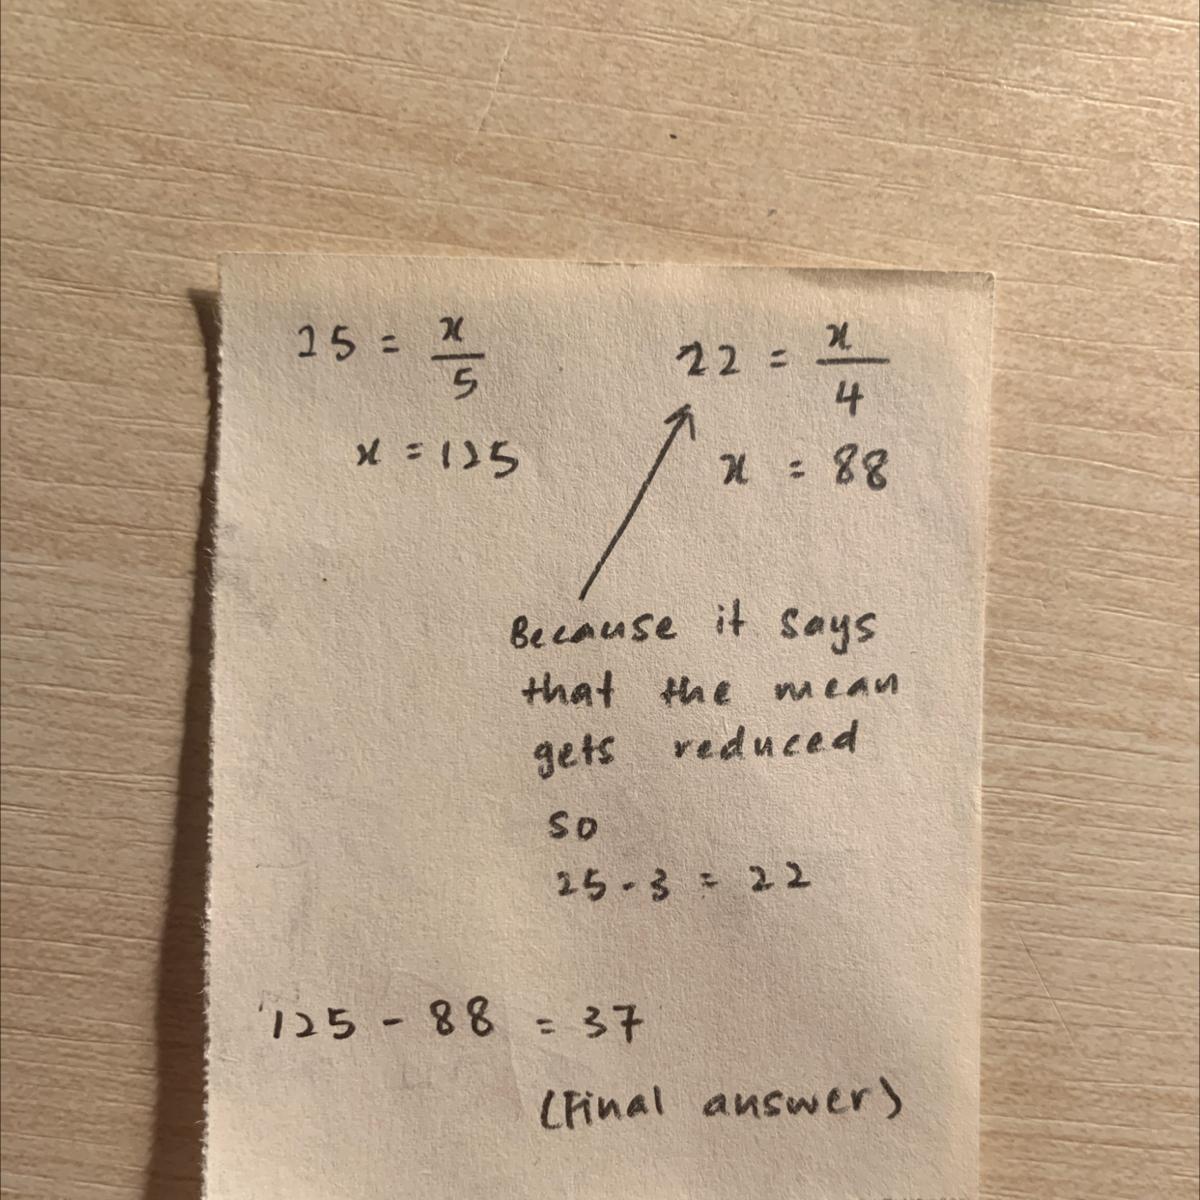 25 = x/5
22 = x/4
x = 125
x = 88
Because it says
that the mean
gets reduced
so
25 - 3 = 22
125 - 88 = 37
(Final answer)